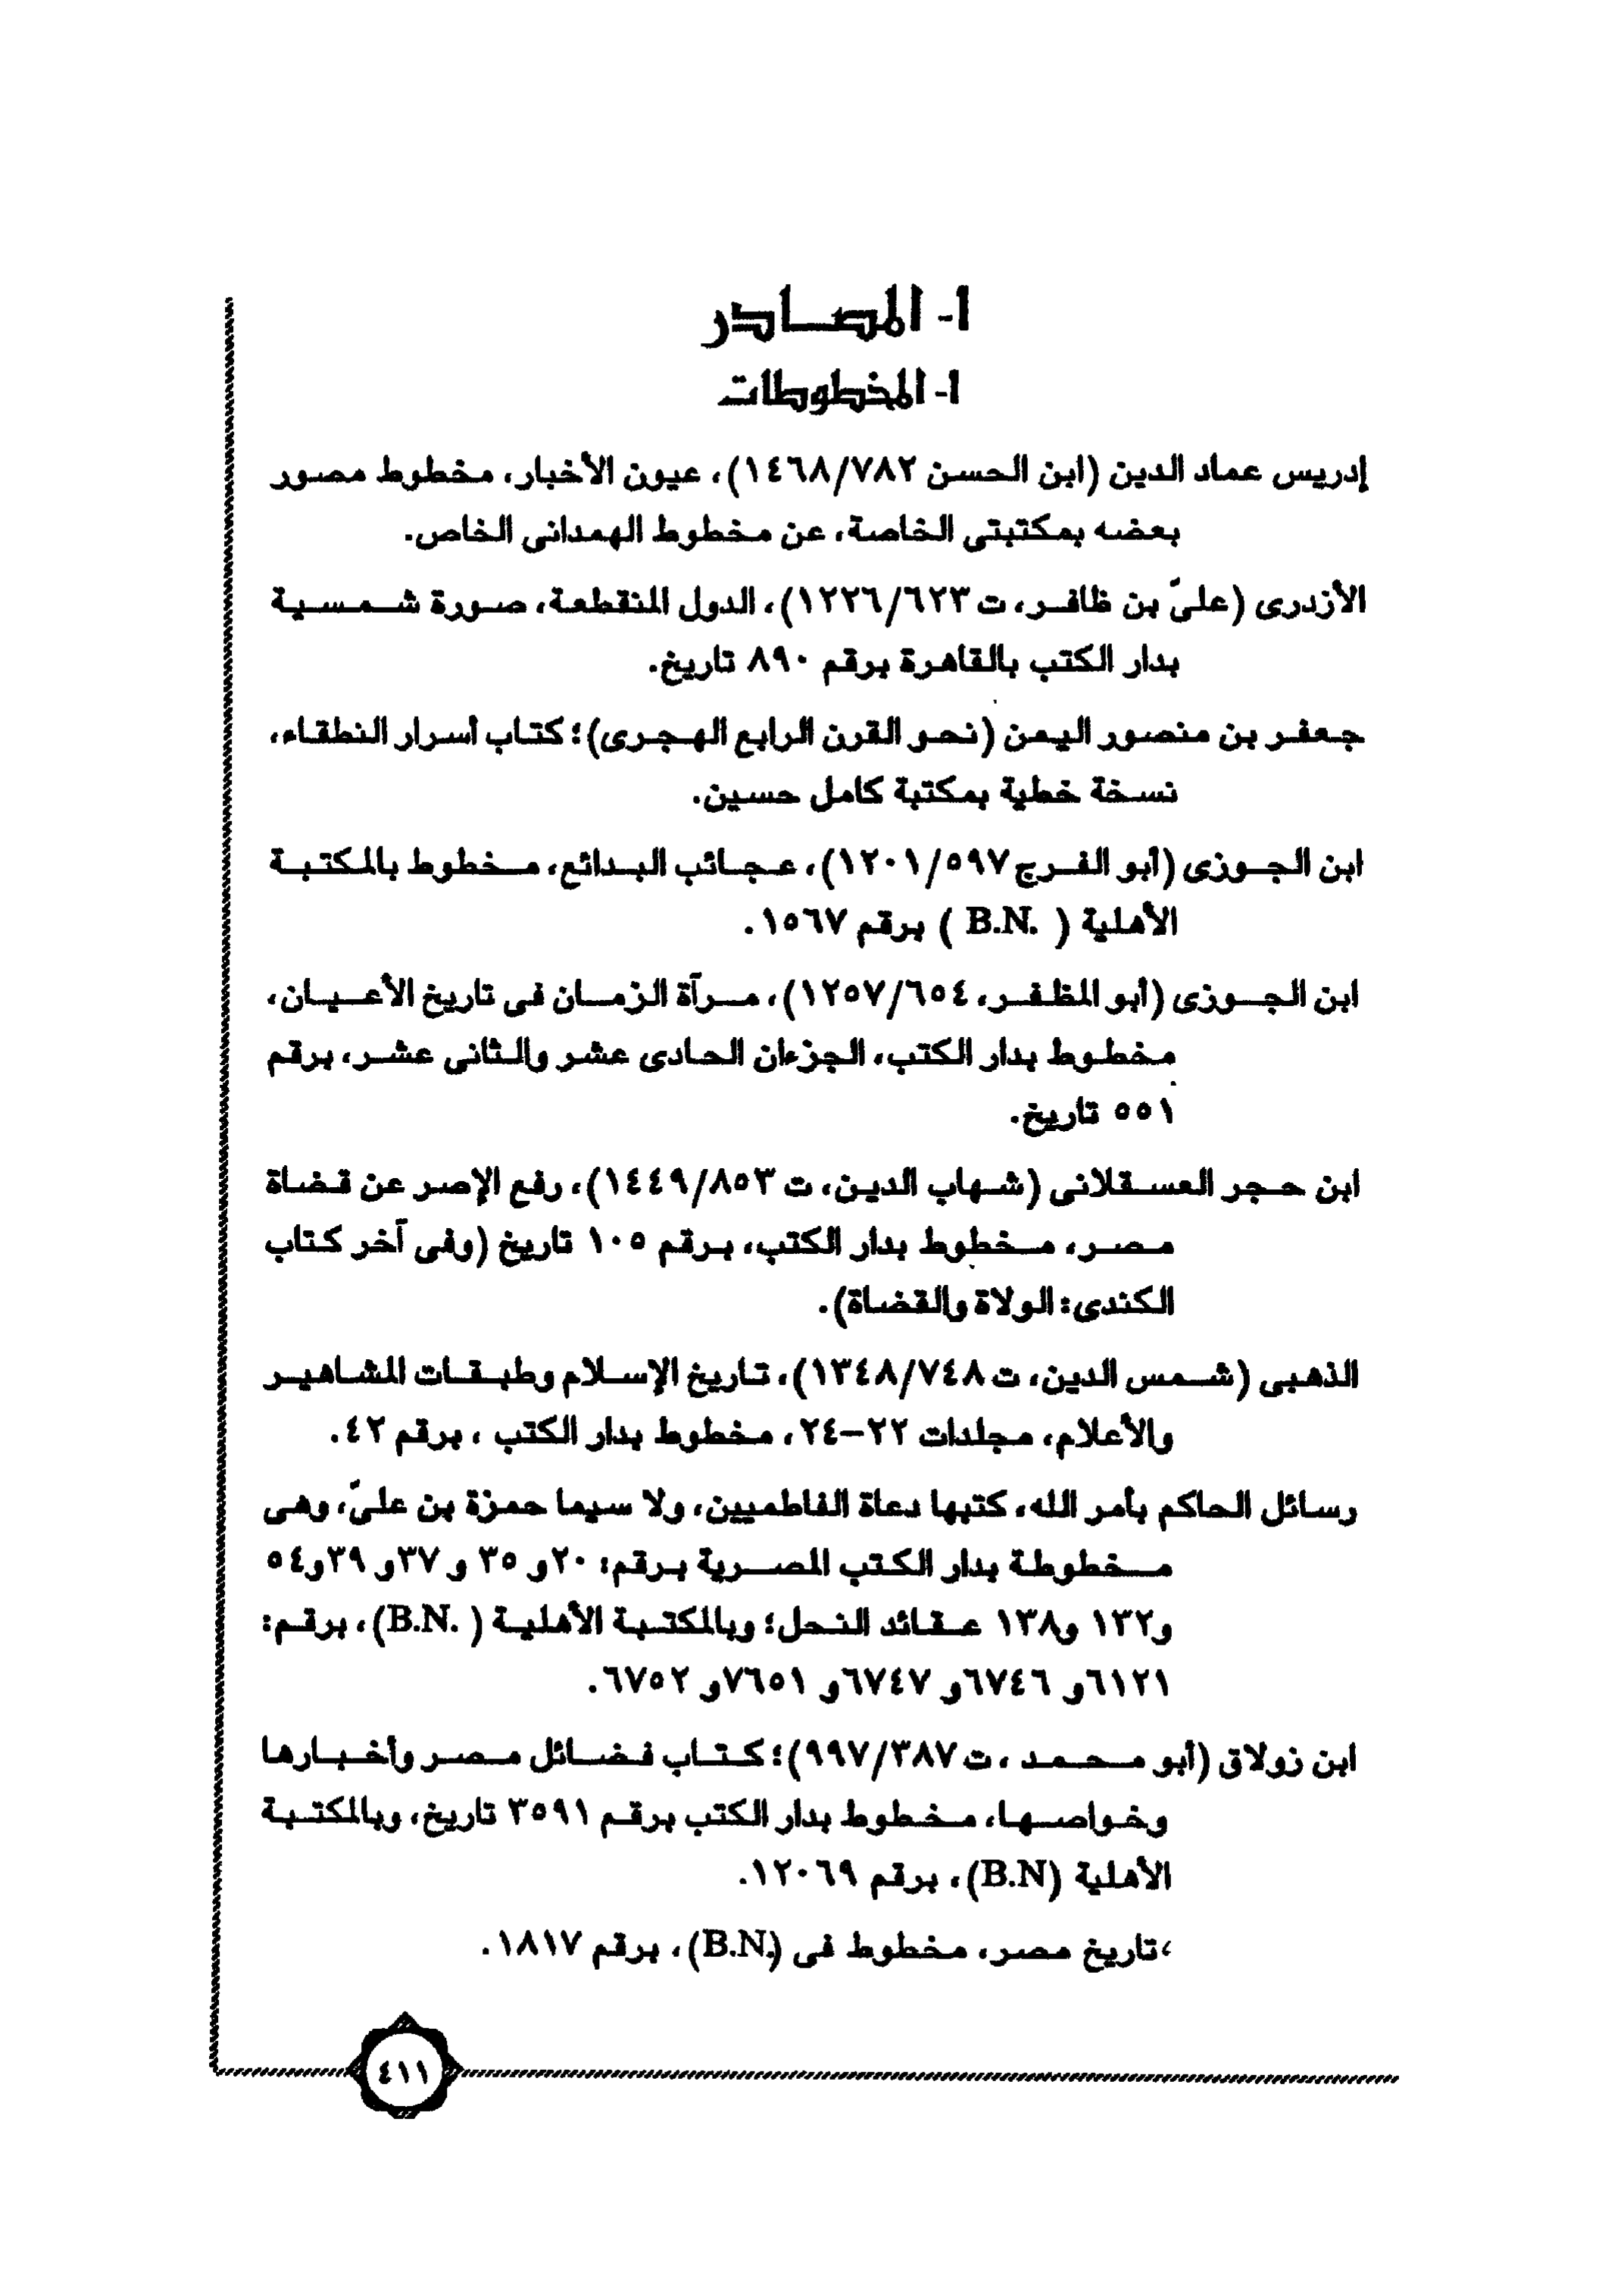 ١- المصادر
١- المخطوطات
إدريس عماد الدين (ابن الحسن ١٤٦٨/٧٨٢)، عيون الأخبار، مخطوط مصور
بعضه بمكتبتى الخاصة، عن مخطوط الهمدانى الخاص.
الأزدرى (علىّ بن ظافر، ت ١٢٢٦/٦٢٣)، الدول المنقطعة، صورة شمسية
بدار الكتب بالقاهرة برقم ٨٩٠ تاريخ.
جعفر بن منصور اليمن (نحو القرن الرابع الهجرى)؛ كتاب أسرار النطقاء،
نسخة خطية بمكتبة كامل حسين.
ابن الجوزى (أبو الفرج ١٢٠١/٥٩٧)، عجائب البدائع، مخطوط بالمكتبة
الأهلية ( B.N. ) برقم ١٥٦٧.
ابن الجوزى (أبو المظفر، ١٢٥٧/٦٥٤)، مرآة الزمان فى تاريخ الأعيان،
مخطوط بدار الكتب، الجزءان الحادى عشر والثانى عشر، برقم
٥٥١ تاريخ.
ابن حجر العسقلانى (شهاب الدين، ت ١٤٤٩/٨٥٣)، رفع الإصر عن قضاة
مصر، مخطوط بدار الكتب، برقم ١٠٥ تاريخ (وفى آخر كتاب
الكندى: الولاة والقضاة).
الذهبى (شمس الدين، ت ١٣٤٨/٧٤٨)، تاريخ الإسلام وطبقات المشاهير
والأعلام، مجلدات ٢٢-٢٤، مخطوط بدار الكتب ، برقم ٤٢.
رسائل الحاكم بأمر الله، كتبها دعاة الفاطميين، ولا سيما حمزة بن علىّ، وهى
مخطوطة بدار الكتب المصرية برقم: ٢٠و ٣٥ و ٣٧و ٣٩و٥٤
و١٣٢ و١٣٨ عقائد النحل؛ وبالمكتبة الأهلية ( B.N.)، برقم:
٦١٢١و ٦٧٤٦و ٦٧٤٧و ٧٦٥١و ٦٧٥٢.
ابن زولاق (أبو محمد ، ت ٩٩٧/٣٨٧)؛ كتاب فضائل مصر وأخبارها
وخواصها، مخطوط بدار الكتب برقم ٣٥٩١ تاريخ، وبالمكتبة
الأهلية (B.N)، برقم ١٢٠٦٩.
،تاريخ مصر، مخطوط فى (B.N.)، برقم ١٨١٧.
٤١١